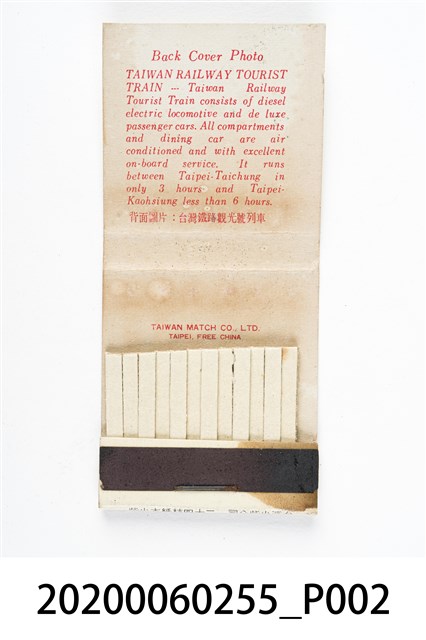 Back Cover Photo
TAIWAN RAILWAY TOURIST
TRAIN --- Taiwan Railway
Tourist Train consists of diesel
electric locomotive and de luxe
passenger cars. All compartments
and dining car are air
conditioned and with excellent
on-board service. It runs
between Taipei-Taichung in
only 3 hours and Taipei-
Kaohsiung less than 6 hours.
背面圖片：台灣鐵路觀光號列車
TAIWAN MATCH CO., LTD.
TAIPEI, FREE CHINA
20200060255_P002